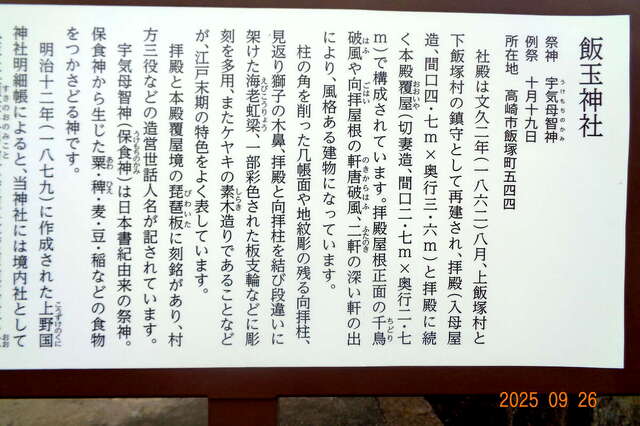 飯玉神社
祭神　宇気母智神
うけもちのかみ
例祭　十月十九日
所在地　高崎市飯塚町五四四
社殿は文久二年(一八六二)八月、上飯塚村と
下飯塚村の鎮守として再建され、拝殿(入母屋
造、間口四・七m×奥行三・六m)と拝殿に続
く本殿覆屋(切妻造、間口二・七m×奥行二・七
おおいや
m)で構成されています。拝殿屋根正面の千鳥
ちどり
破風や向拝屋根の軒唐破風、二軒の深い軒の出
はふ　ごはい　のきからはふ　ふたのき
により、風格ある建物になっています。
柱の角を削った几帳面や地紋彫の残る向拝柱、
見返り獅子の木鼻、拝殿と向拝柱を結び段違いに
架けた海老虹梁、一部彩色された板支輪などに彫
えびこうりょう
刻を多用、またケヤキの素木造りであることなど
しらき
が、江戸末期の特色をよく表しています。
拝殿と本殿覆屋境の琵琶板に刻銘があり、村
びわいた
方三役などの造営世話人名が記されています。
宇気母智神(保食神)は日本書紀由来の祭神。
うけもちのかみ
保食神から生じた粟・稗・麦・豆・稲などの食物
あわ　ひえ
をつかさどる神です。
明治十二年(一八七九)に作成された上野国
こうずけのくに
神社明細帳によると、当神社には境内社として
すさのおのみこと
おお
2025 09 26